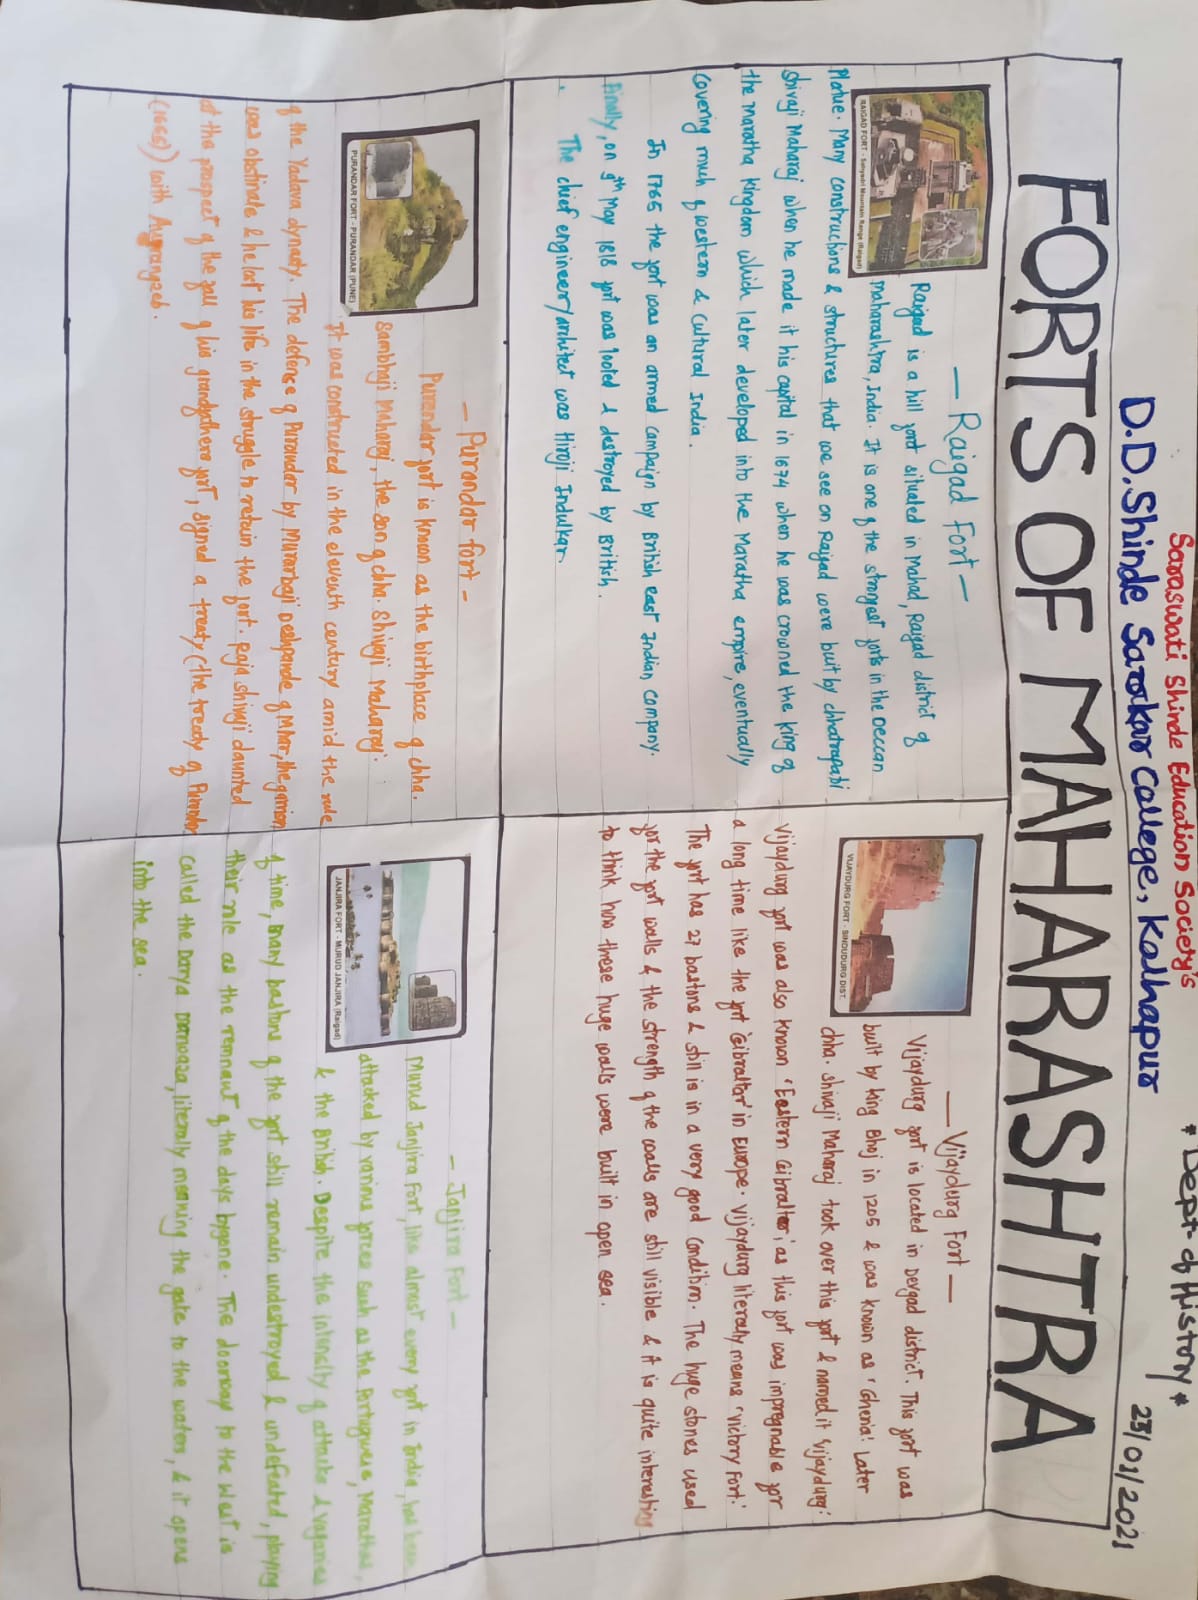 Saraswati Shinde Education Society's
* Dept. of History *
D.D.Shinde Sarakar College, Kolhapur
23/01/2021
FORTS OF MAHARASHTRA
RAIGAD FORT - Sahyadri Mountain Range (Raigad)
— Raigad Fort —
Raigad is a hill fort situated in Mahad, Raigad district of
maharashtra, India. It is one of the strongest forts in the Deccan
Platue. Many constructions & structures that we see on Raigad were built by chhatrapati
Shivaji Maharaj when he made it his capital in 1674 when he was crowned the king of
the Maratha Kingdom which later developed into the Maratha empire, eventually
covering much of western & cultural India.
In 1765 the fort was an armed campaign by British east Indian company.
Finally, on 9th May 1818 fort was looted & destroyed by British.
. The chief engineer/architect was Hiroji Indulkar.
VIJAYDURG FORT - SINDUDURG DIST.
— Vijaydurg Fort —
Vijaydurg fort is located in Devgad district. This fort was
built by king Bhoj in 1205 & was known as 'Gheria'. Later
chha. Shivaji Maharaj took over this fort & named it 'vijaydurg'.
vijaydurg fort was also known 'Eastern Gibralter', as this fort was impregnable for
a long time like the fort 'Gibraltor' in Europe. Vijaydurg literally means 'victory Fort'.
The fort has 27 bastons & still is in a very good condition. The huge stones used
for the fort walls & the strength of the walls are still visible & it is quite interesting
to think how these huge walls were built in open sea.
PURANDAR FORT - PURANDAR (PUNE)
— Purandar fort —
Purandar fort is known as the birthplace of chha.
Sambhaji Maharaj, the son of chha. Shivaji Maharaj.
It was constructed in the eleventh century amid the rule
of the Yadava dynasty. The defense of Purandar by Murarbaji Deshpande of Mhar, the garrison
was obstinate & he lost his life in the struggle to retain the fort. Raja Shivaji daunted
at the prospect of the fall of his grandfathers fort, signed a treaty (the treaty of Purandar
(1665)) with Aurangzeb.
JANJIRA FORT - MURUD JANJIRA (Raigad)
— Janjira Fort —
Murud Janjira Fort, like almost every fort in India, has been
attacked by various forces such as the Portuguese, Marathas,
& the British. Despite the intensity of attacks & vagaries
of time, many bastons of the fort still remain undestroyed & undefeated, playing
their role as the remnant of the days bygone. The doorbay to the west is
called the Darya Darwaza, literally meaning the gate to the waters, & it opens
into the sea.